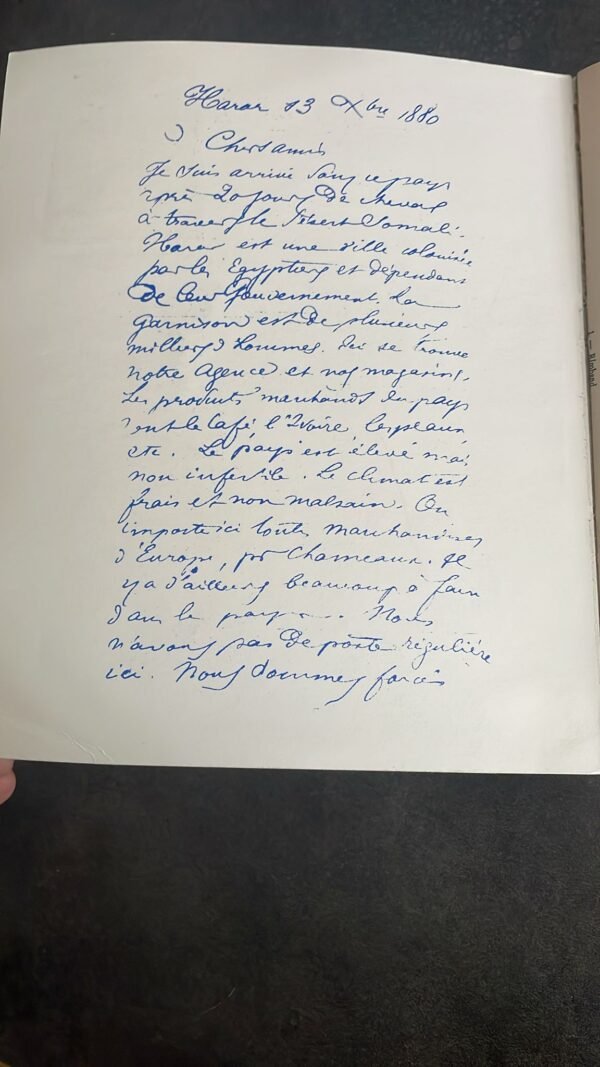 Harar 13 Xbre 1880
Chers amis
Je suis arrivé dans ce pays
après 20 jours de cheval
à travers le Désert Somali.
Harar est une ville colonisée
par les Egyptiens et dépendant
de leur Gouvernement. La
garnison est de plusieurs
milliers d'hommes. Ici se trouve
notre Agence et nos magasins.
Les produits marchands du pays
sont le Café l'Ivoire, les peaux
etc. Le pays est élevé mais
non infertile. Le climat est
frais et non malsain. On
importe ici toutes marchandises
d'Europe, pr Chameaux. Il
y a d'ailleurs beaucoup à faire
dans le pays. Nous
n'avons pas de poste régulière
ici. Nous sommes forcés
1 — Rimbaud